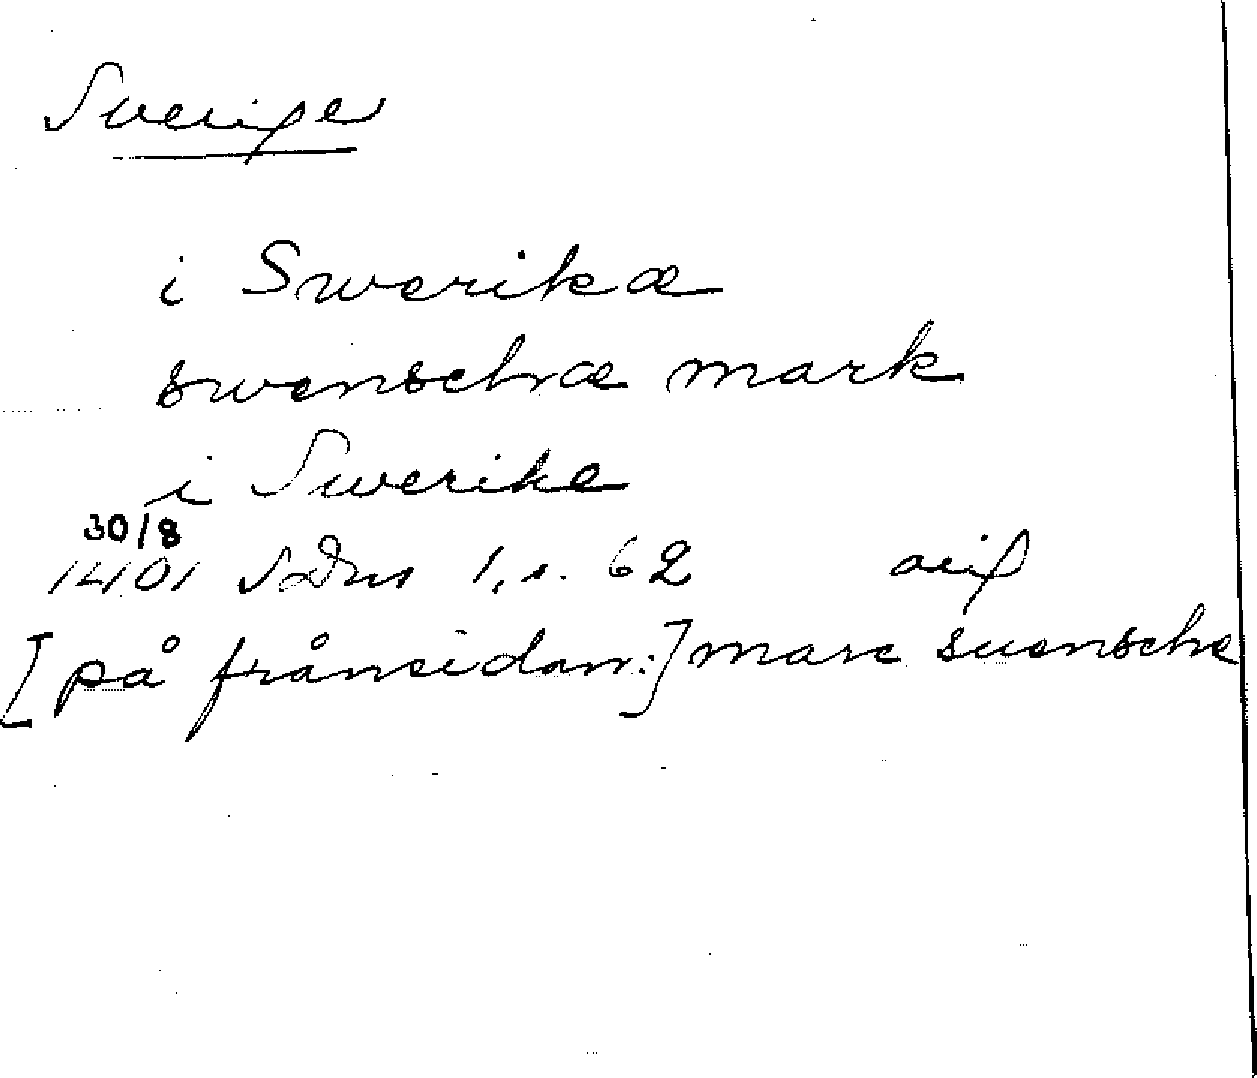 Sverige
i Swerikæ
swenschæ mark
i Swerike
30/8
1401 SDns 1, s. 62 orig
[på frånsidan:] marc suensche